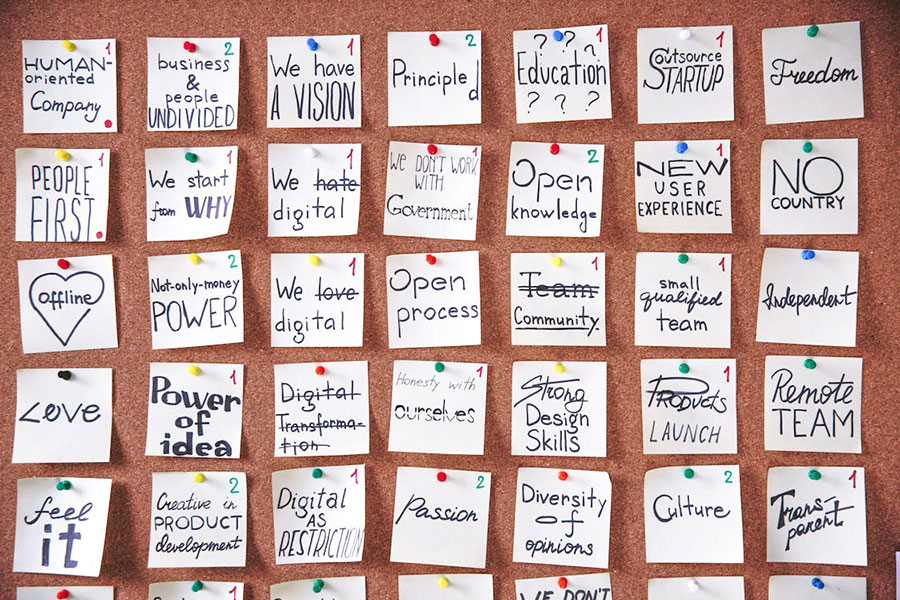 HUMAN- 1
oriented
Company
business 2
&
people
UNDIVIDED
We have 1
A VISION
Principled 2
? ? ? 1
Education
? ? ?
Outsource 1
STARTUP
Freedom
PEOPLE 1
FIRST
We start 1
from WHY
We hate 1
digital
WE DON'T WORK 1
WITH
Government
Open 2
knowledge
NEW 1
USER
EXPERIENCE
NO
COUNTRY
offline
Not-only-money 2
POWER
We love 1
digital
Open
process
Team 1
Community
small 1
qualified
team
Independent
Love
Power 1
of
idea
Digital
Transforma-
tion
Honesty with 1
ourselves
Strong
Design
Skills
Products 1
LAUNCH
Remote
TEAM
feel
it
Creative in 2
PRODUCT
development
Digital 1
AS
RESTRICTION
Passion 2
Diversity
of
opinions
Culture 2
Trans- 1
parent
1
WE DON'T